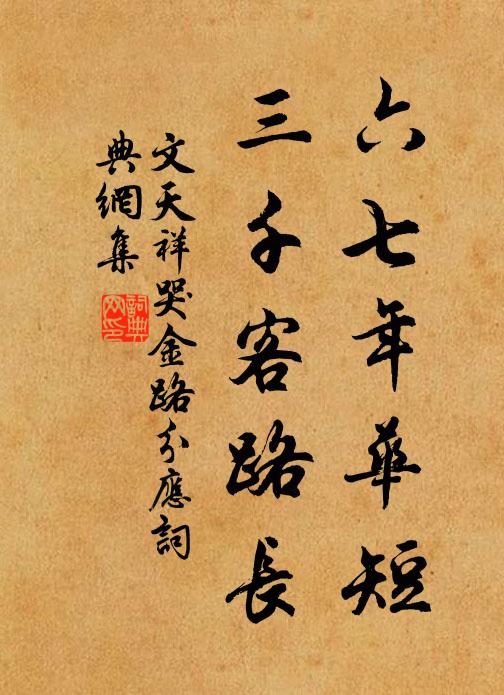 六七年華短
三千客路長
文天祥哭金路分應詞
典網集
詞典
网印